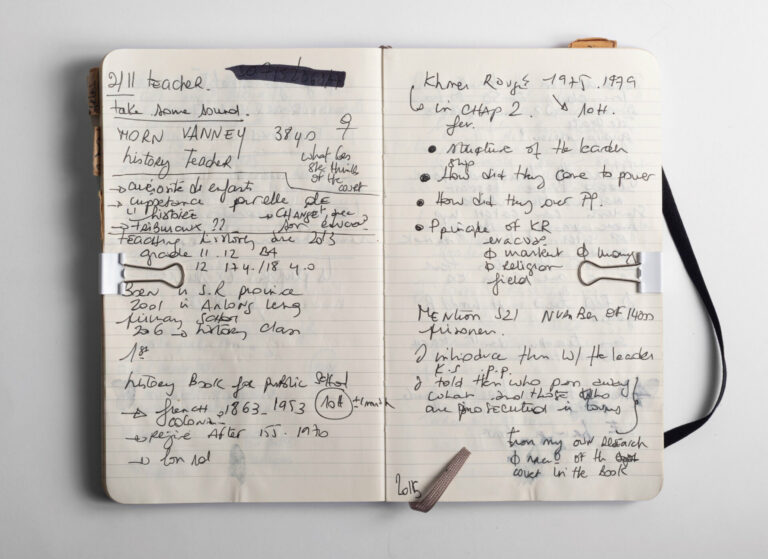 2/11 teacher.
take some sound.
MORN VANNEY 38 yo ♀
history teacher
what does
she thinks
of the
court
→ curiosité de enfants
→ importance pour elle de
" histoire → CHANGE
→ tribunaux ??
teaching history 2013
grade 11 . 12
12 17 y. / 18 y.o
Born in S.R province
2001 in Anlong Veng
primary school
2006 → history class
1st
history Book for public school
→ french 1863 - 1953 10H
colonial
→ After 1970
→ Lon nol
Khmer Rouge 1975. 1979
in CHAP 2. 10H.
• structure of the leader
ship
• How did they come to power
• How did they over PP.
• Principle of KR
evacuas
ϕ market ϕ money
ϕ religion
field
MENTION S21 NUMBER OF 14000
prisoners.
introduce them W/ the leader
K.S P.P.
told them who pass away
what and those who
are prosecuted in
from my own research
ϕ of the
court in the Book
2015